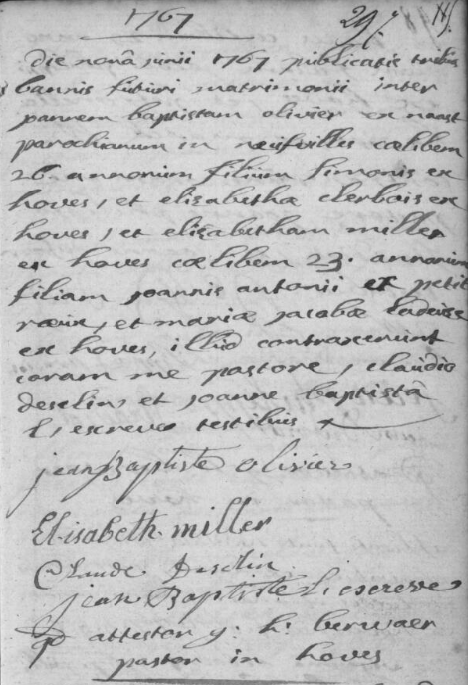 1767 297
die nonâ junii 1767 publicatis tribus
bannis futuri matrimonii inter
joannem baptistam olivier ex naast
parochianum in neufvilles cœlibem
26 annorum filium simonis ex
hoves, et elisabethæ clerbois ex
hoves, et elisabetham miller
ex hoves cœlibem 23. annorum
filiam joannis antonii ex petit
rœux, et mariæ jacobæ
ex hoves, illud contraxerunt
coram me pastore, claudio
desclin, et joanne baptistâ
l'escreve testibus
jean Baptiste olivier
Elisabeth miller
Claude Desclin
jean Baptiste L'escreve
qd attestor g: h: berwaer
pastor in hoves